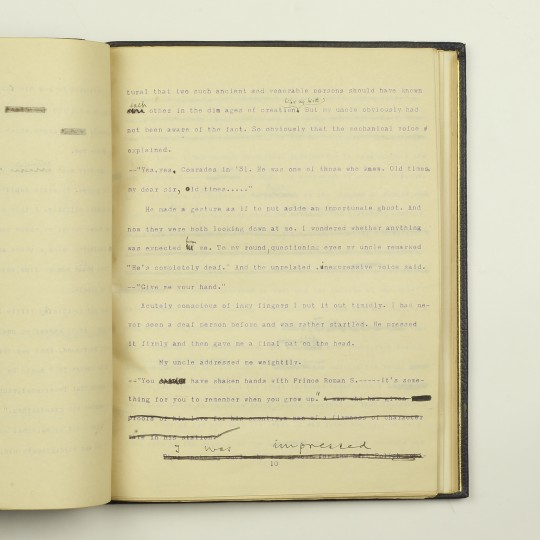 tural that two such ancient and venerable persons should have known
each other in the dim ages of creation. But my uncle obviously had
not been aware of the fact. So obviously that the mechanical voice
explained.
--"Yes,yes. Comrades in '31. He was one of those who knew. Old times
my dear sir, old times....."
He made a gesture as if to put aside an importunate ghost. And
now they were both looking down at me. I wondered whether anything
was expected from me. To my round,questioning eyes my uncle remarked
"He's completely deaf." And the unrelated ,inexpressive voice said.
--"Give me your hand."
Acutely conscious of inky fingers I put it out timidly. I had ne-
ver seen a deaf person before and was rather startled. He pressed
it firmly and then gave me a final pat on the head.
My uncle addressed me weightily.
--"You have shaken hands with Prince Roman S.-----It's some-
thing for you to remember when you grow up."
proofs of his love for his country and his firmness of character
I was impressed
10